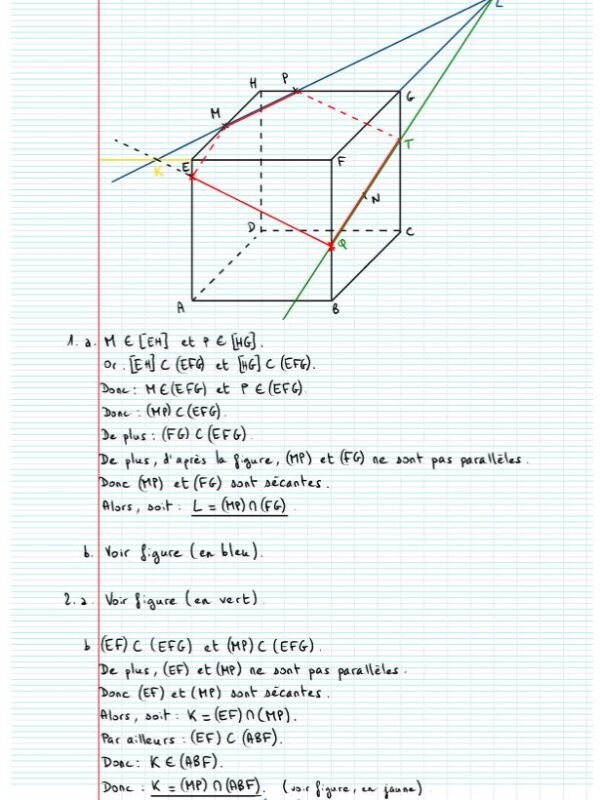 L
H
P
G
M
T
E
K
F
N
D
Q
C
A
B
1. a. M ∈ [EH] et P ∈ [HG].
Or : [EH] ⊂ (EFG) et [HG] ⊂ (EFG).
Donc : M ∈ (EFG) et P ∈ (EFG).
Donc : (MP) ⊂ (EFG).
De plus : (FG) ⊂ (EFG).
De plus, d'après la figure, (MP) et (FG) ne sont pas parallèles.
Donc (MP) et (FG) sont sécantes.
Alors, soit : L = (MP) ∩ (FG)
b. Voir figure (en bleu).
2. a. Voir figure (en vert).
b (EF) ⊂ (EFG) et (MP) ⊂ (EFG).
De plus, (EF) et (MP) ne sont pas parallèles.
Donc (EF) et (MP) sont sécantes.
Alors, soit : K = (EF) ∩ (MP).
Par ailleurs : (EF) ⊂ (ABF).
Donc : K ∈ (ABF).
Donc : K = (MP) ∩ (ABF). (voir figure, en jaune)